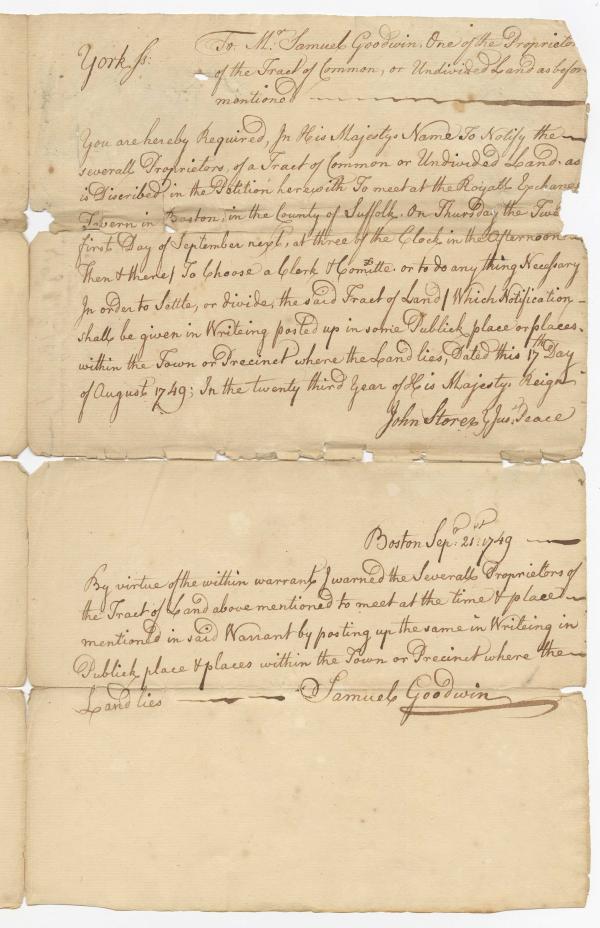 York ss:
To Mr Samuel Goodwin, One of the Proprietor
of the Tract of Common, or Undivided Land as befor
mentioned
You are hereby Required, In His Majestys Name To Notify the
severall Proprietors, of a Tract of Common or Undivided Land, as
is Discribed in the Petition herewith To meet at the Royall Exchange
Tavern in Boston, in the County of Suffolk. On Thursday the Twe
first Day of September next, at three of the Clock in the Afternoon
Then & there / To Choose a Clerk & Comitte or to do any thing Necessary
In order to Settle, or divide, the said Tract of Land / Which Notification
shall be given in Writeing posted up in some Publick place or places
within the Town or Precinct where the Land lies, Dated this 17th Day
of August 1749; In the twenty third Year of His Majestys Reign
John Storer Jus Peace
Boston Sepr 21st 1749
By virtue of the within warrant I warned the Severall Proprietors of
the Tract of Land above mentioned to meet at the time & place
mentioned in said Warrant by posting up the same in Writeing in
Publick place & places within the Town or Precinct where the
Land lies Samuel Goodwin